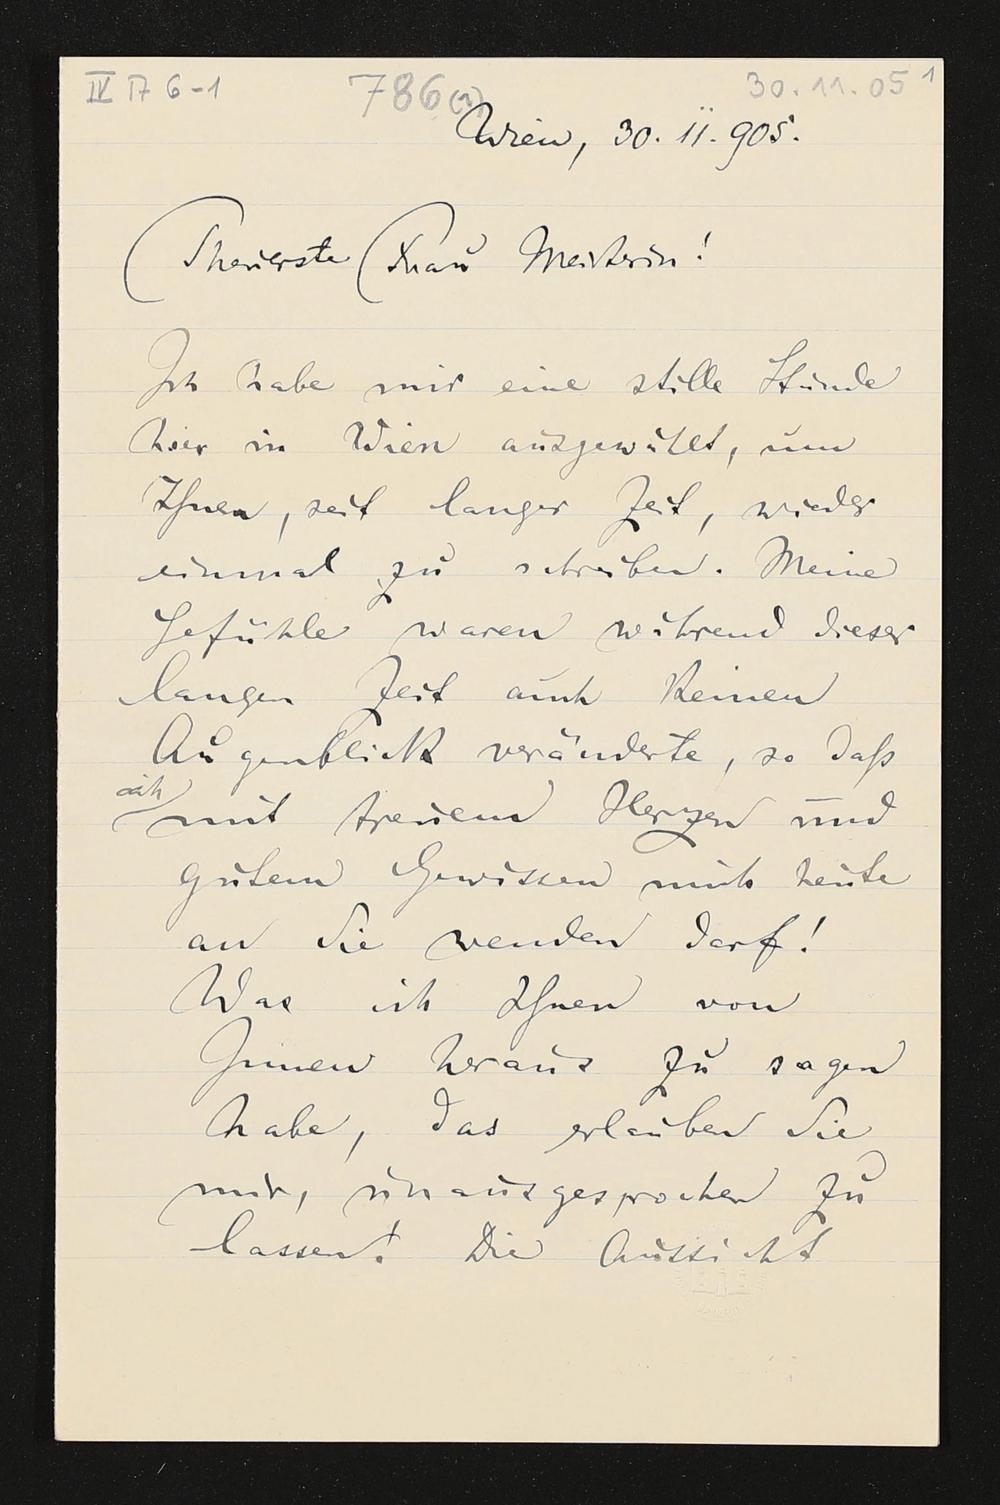 IV 17 6-1 786(1) 30.11.05 1
Wien, 30. 11. 905.
Theuerste Frau Meisterin!
Ich habe mir eine stille Stunde
hier in Wien ausgewählt, um
Ihnen, seit langer Zeit, wieder
einmal zu schreiben. Meine
Gefühle waren während dieser
langen Zeit auch keinen
Augenblick veränderte, so daß
ich
mit treuem Herzen und
gutem Gewissen mich heute
an Sie wenden darf!
Was ich Ihnen von
Innen heraus zu sagen
habe, das erlauben Sie
mir, unausgesprochen zu
lassen! Die Aussicht